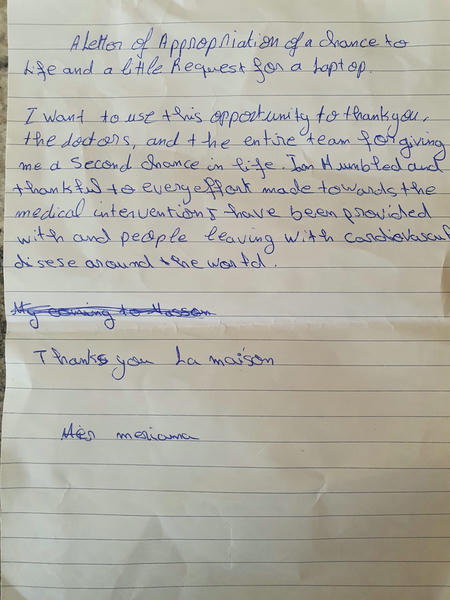 A Letter of Appropriation of a chance to
Life and a little Request for a Laptop.
I want to use this opportunity to thank you,
the doctors, and the entire team for giving
me a Second chance in life. I am Humbled and
thankful to every effort made towards the
medical intervention I have been provided
with and people leaving with cardiovascul
disese around the world.
My coming to Masson
Thanks you La maison
meriama